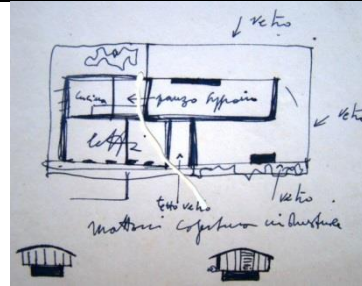 vetro
cucina
pranzo soggiorno
vetro
letti
vetro
tetto vetro
mattoni copertura industriale